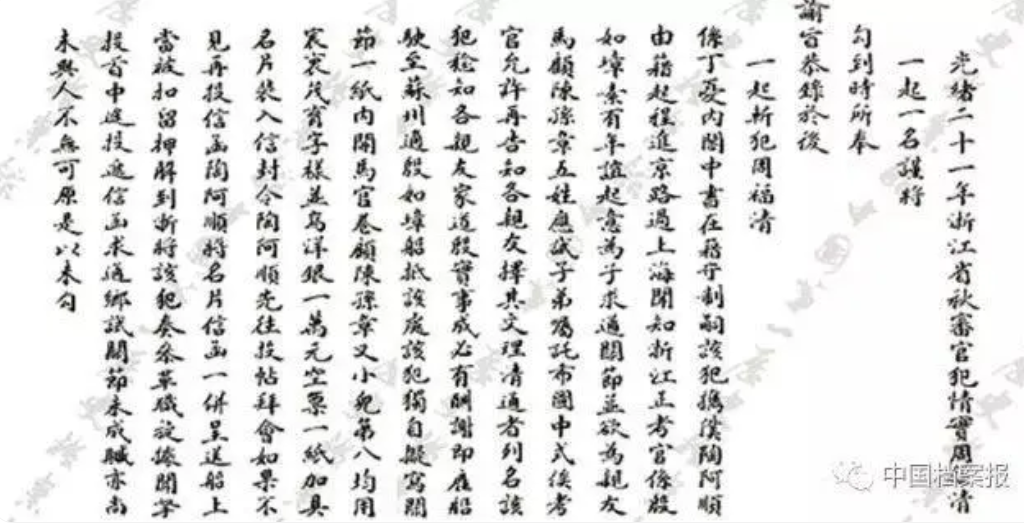 光緒二十一年浙江省秋審官犯情實周福清
一起一名謹將
勾到時所奉
諭旨恭錄於後
一起斬犯周福清
係丁憂內閣中書在籍守制嗣該犯攜僕陶阿順
由籍起程進京路過上海聞知浙江正考官係殷
如璋素有年誼起意為子求通關節並欲為親友
馬顧陳孫章五姓應試子弟囑託希圖中式俟考
官允許再告知各親友擇其文理清通者列名該
犯稔知各親友家道殷實事成必有酬謝即雇船
駛至蘇州適殷如璋船抵該處該犯獨自擬寫關
節一紙內開馬官卷顧陳孫章又小兒第八均用
宸衷茂育字樣並寫洋銀一萬元空票一紙加具
名片裝入信封令陶阿順先往投帖拜會如果不
見再投信函陶阿順將名片信函一併呈送船上
當被扣留押解到浙將該犯奏參革職旋據聞拏
投首中途投遞信函求通鄉試關節未成贓亦尚
未與人不無可原是以未勾
中国档案报